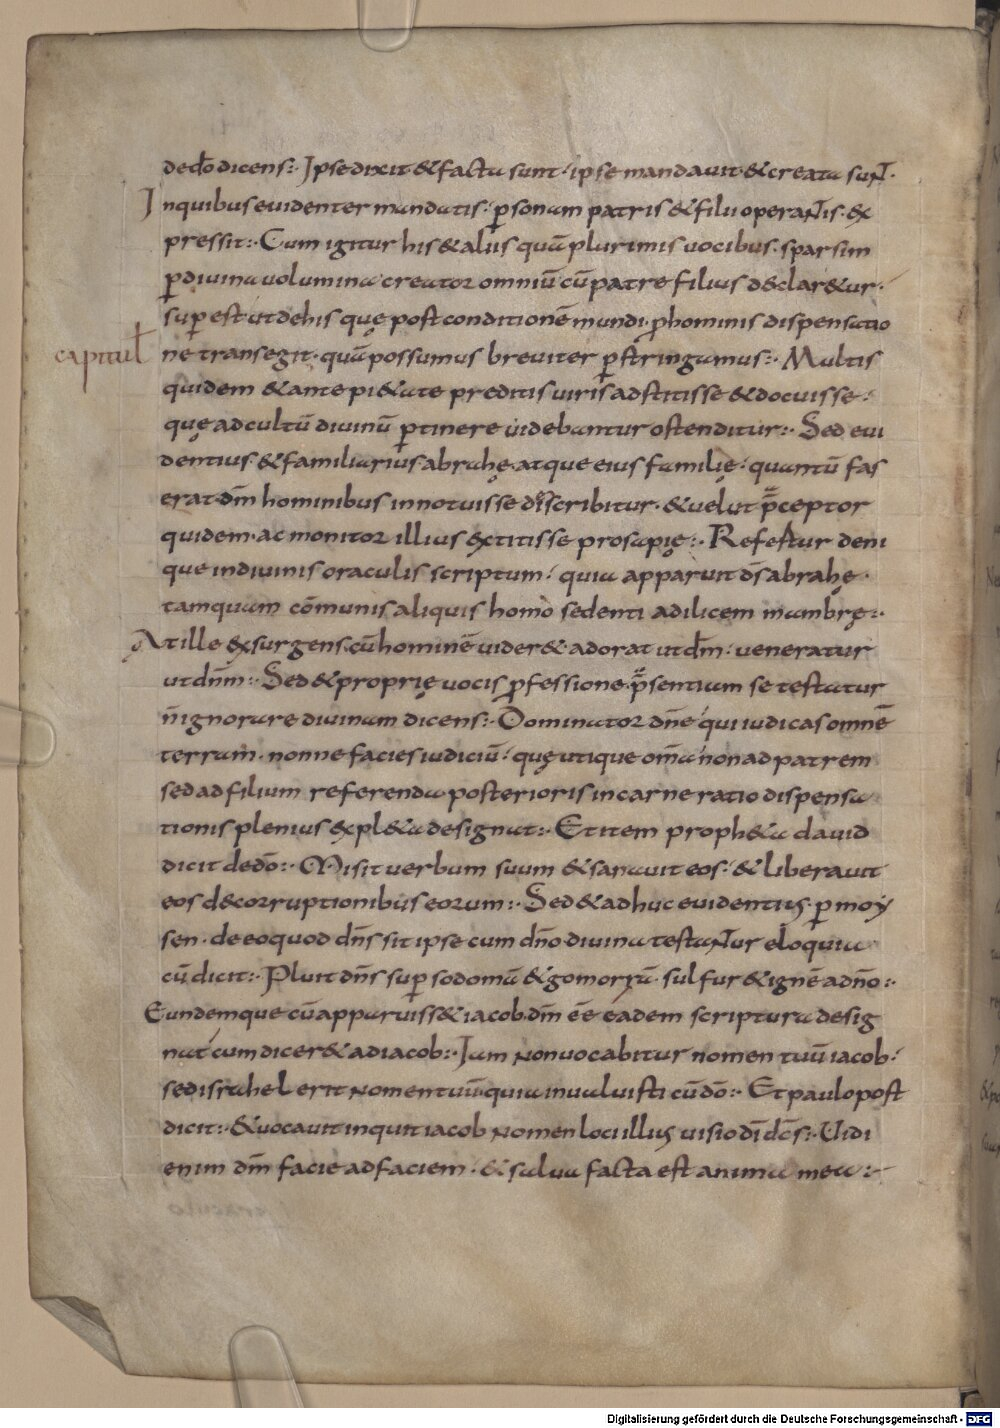 dedō dicens:· Ipse dixit & facta sunt· ipse mandauit· & creata suNT·
Inquibus euidenter mandatis· ꝑsonam patris & filii operaNTis· ex
pressit:· Cum igitur his & aliis quā plurimis uocibus· sparsim
ꝑ diuina uolumina creator omniū cū patre filius d&clar&ur·
suꝑ est ut de his quę post conditionē mundi· ꝓ hominis dispensatio
capitul̄
ne transegit· quā possumus breuiter ꝑstringamus:· Multis
quidem & ante pi&ate preditis uiris adstitisse & docuisse·
quę ad cultū diuinū ꝑtinere uidebantur ostenditur:· Sed eui
dentius & familiarius abrahę atque eius familię· quantū fas
erat dm̄ hominibus innotuisse discribitur· & uelut p̄ceptor
quidem· ac monitor illius extitisse prosapię:· Refertur deni
que indiuinis oraculis scriptum· quia apparuit ds̄ abrahę·
tamquam cōmunis aliquis homo sedenti adilicem mambrę:·
At ille exsurgens cū hominē uider&· adorat ut dm̄· ueneratur
ut dnm̄:· Sed & proprię uocis ꝓfessione p̄sentiam se testatur
n̄ ignorare diuinam dicens:· Dominator dn̄e qui iudicas omnē
terram· nonne facies iudiciū· quę utique om̄a non ad patrem
sed ad filium referenda posterioris incarne ratio dispensa
tionis plenius expl&a designat:· Et item proph&a dauid
dicit dedō:· Misit uerbum suum & sanauit eos· & liberauit
eos d&corruptionibus eorum:· Sed & adhuc euidentius· ꝑ moy
sen· de eo quod dn̄s sit ipse cum dn̄o diuina testaNTur eloquia
cū dicit:· Pluit dn̄s suꝑ sodomā & gomorrā· sulfur & ignē adn̄o:·
Eundemque cū apparuiss& iacob· dm̄ ēē eadem scriptura desig
nat cum dicer& adiacob:· Iam Non uocabitur nomen tuū iacob·
sed israhel erit Nomen tuū quia inualuisti cū dō:· Et paulo post
dicit:· & uocauit inquit iacob Nomen loci illius uisio dī dc̄s:· Uidi
enim dm̄ facie ad faciem· & salua facta est anima mea:·
Digitalisierung gefördert durch die Deutsche Forschungsgemeinschaft - DFG